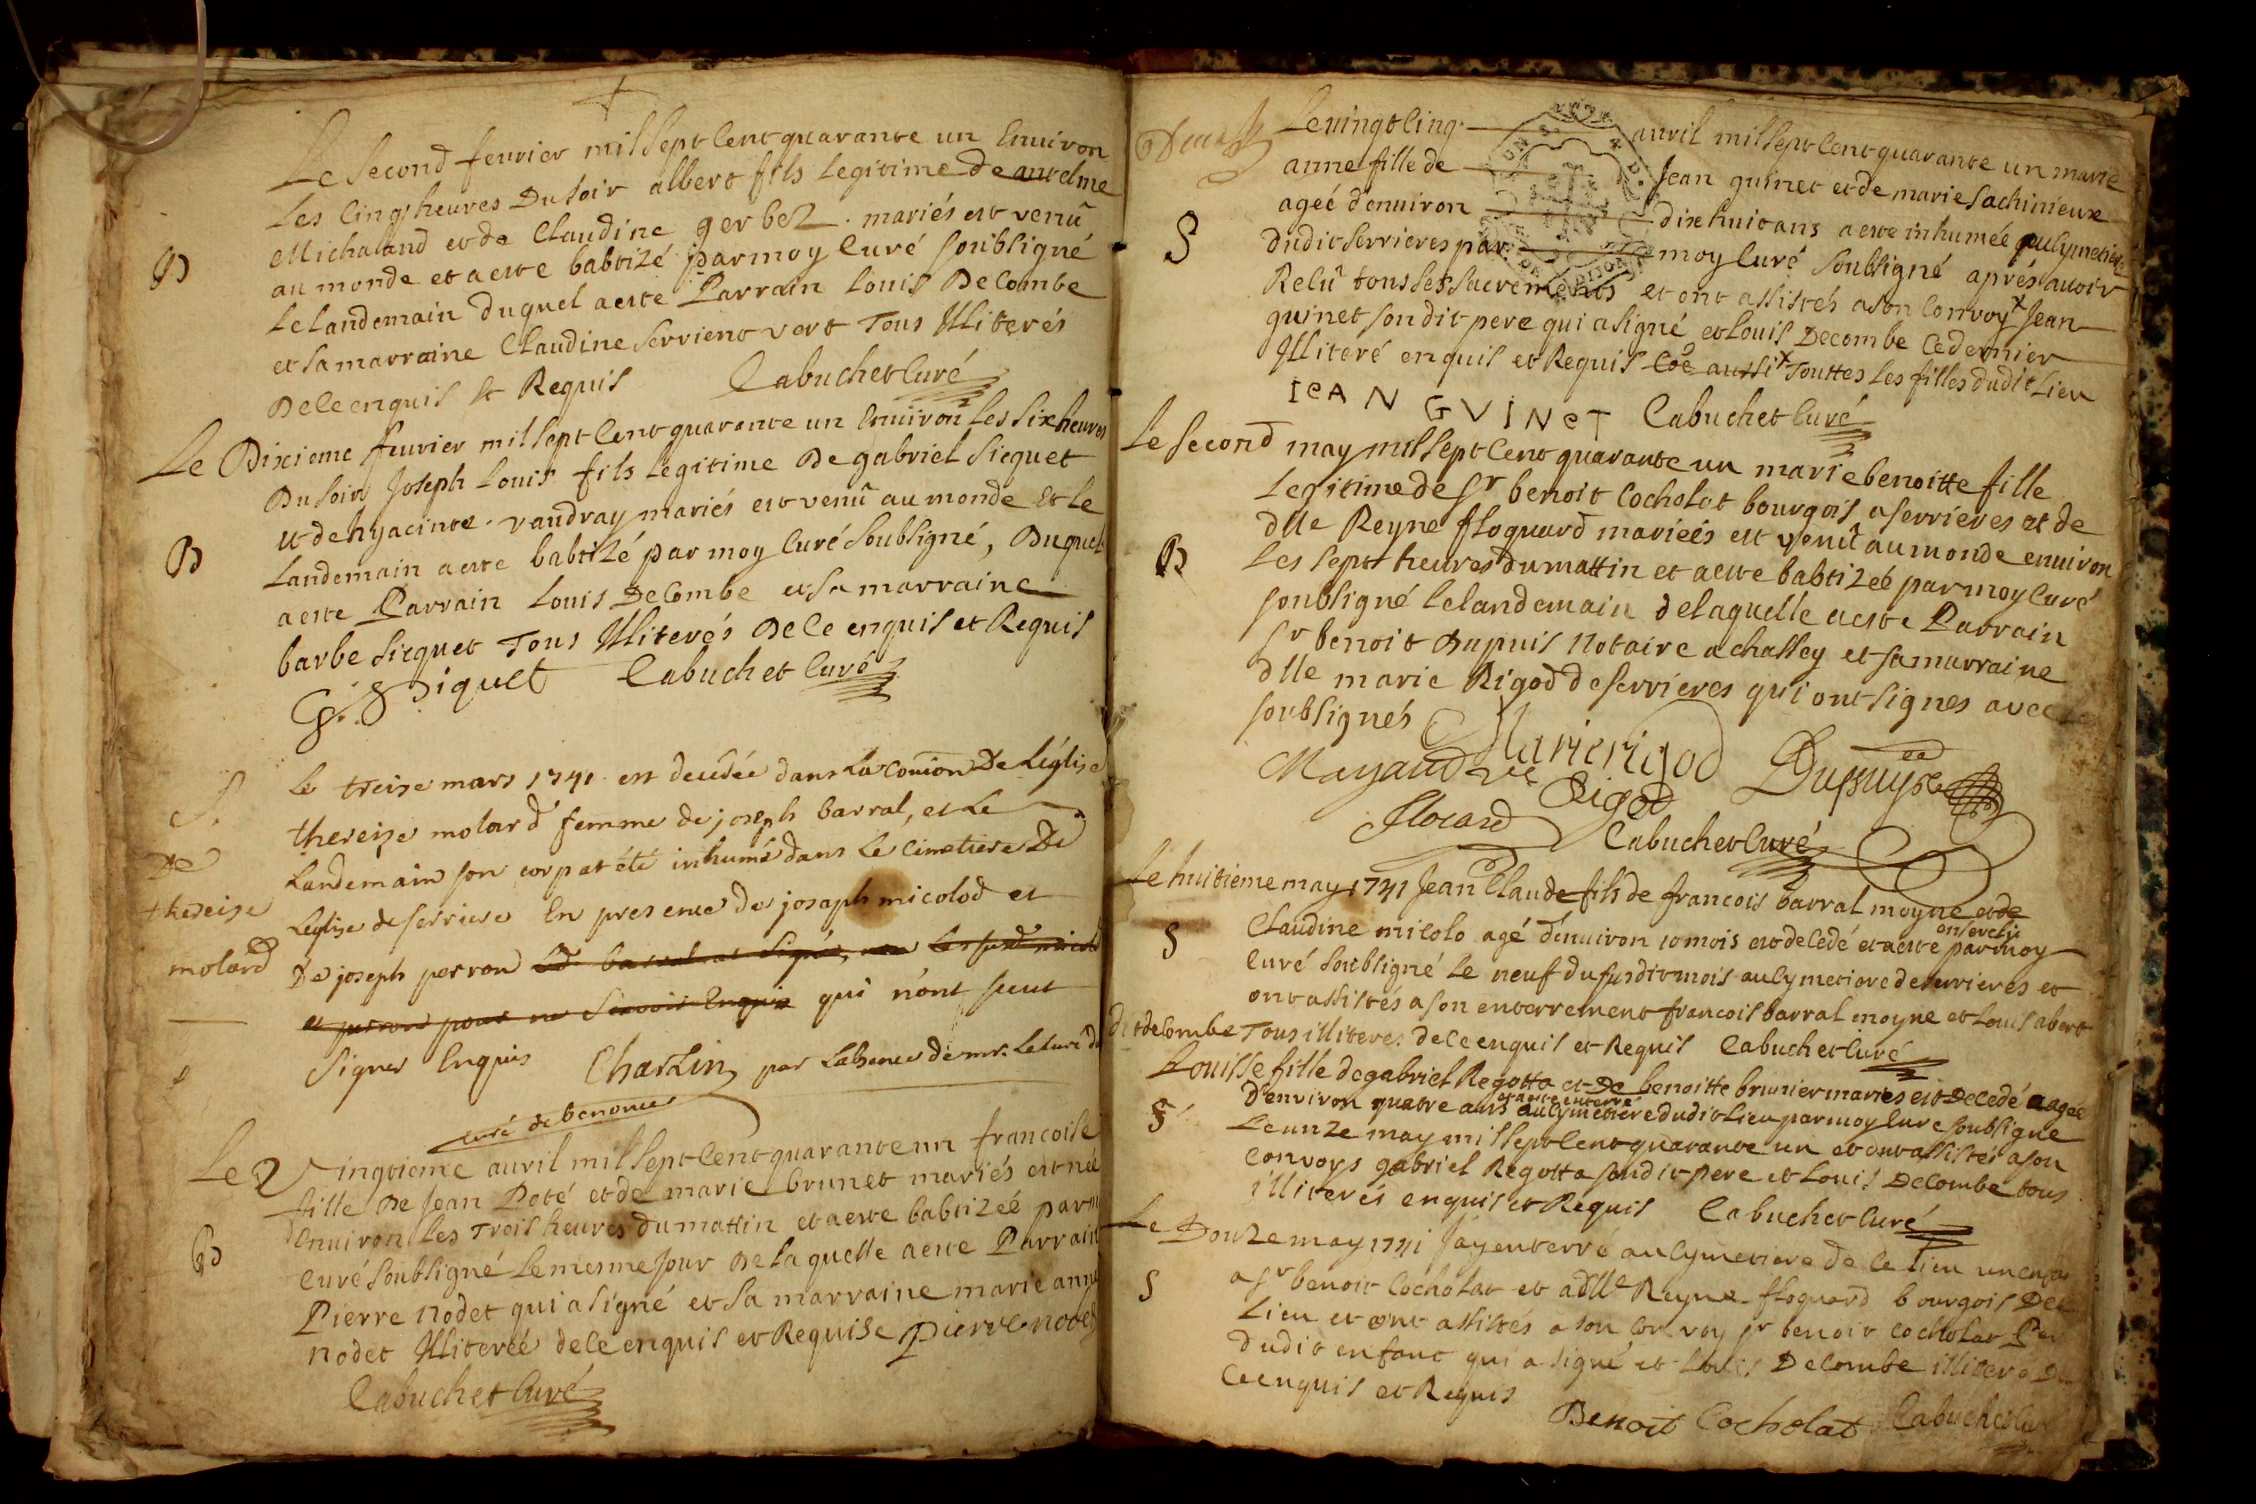 Le second feurier mil sept cent quarante un Enuiron
Les cinq heures Du soir albert fils legitime de antelme
Michaland et de Claudine gerbez mariés est venû
B
au monde et a este babtizé par moy Curé soubsigné
Le landemain duquel a este Parrain Louis Decombe
et sa marraine Claudine serrient vert Tous Illiterés
De ce enquis et Requis Cabuchet Curé
Le Dixieme feurier mil sept cent quarante un Enuiron les six heures
Du soir Joseph Louis fils legitime De gabriel Sicquet
et de hyacinte vaudray mariés est venû au monde Et le
B
Landemain a este babtizé par moy Curé soubsigné, Duquel
a este Parrain Louis Decombe et sa marraine
barbe Sicquet Tous Illiterés De ce enquis et Requis
G. Siquet Cabuchet Curé
S.
De
thereise
molard
Le treise mars 1741 est decedée dans La comion De Léglise
thereise molard femme de joseph barral, et Le
Landemain son corp at été inhumé dans Le cimetiere De
Léglise de serriere En presence de joseph micolod et
De joseph perron
qui n'ont sceut
signer Enquis Charlin par Labsence de mr. Le curé de
curé de benonce
Le Vingtieme auril mil sept cent quarante un francoise
fille De Jean Poté et de marie brunet mariés est née
Enuiron les Trois heures du mattin et a este babtizéé par moy
B
Curé soubsigné Le mesme Jour De la quelle a este Parrain
Pierre Nodet qui a signé et sa marraine marie anne
Nodet Illiteréé de ce enquis et Requise Pierre nodet
Cabuchet Curé
Le vingt cinq auril mil sept cent quarante un marie
anne fille de Jean guinet et de marie sachinieux
ageé denuiron dixhuit ans a este inhumée au Cymetiere
S
dudit serrieres par moy Curé soubsigné aprés auoir
Relû tous ses sacrements et ont assistés a son Convoy Jean
guinet son dit pere qui a signé et Louis Decombe ce dernier
Illiteré enquis et Requis Touttes les filles dudit Lieu
IeAN GVINeT Cabuchet Curé
Le second may mil sept cent quarante un marie benoitte fille
Legitime de sr benoit Cocholat bourgois a serrieres et de
dlle Reyne floquard marieés est venuë au monde enuiron
B
Les sept heures du mattin et a este babtizéé par moy Curé
soubsigné le landemain de laquelle a este Parrain
sr benoit Dupuis Notaire a chalsey et sa marraine
dlle marie Rigod de serrieres qui ont signes avec les
soubsignés
Marie rigod
Rigod
Dupuys
flocard
Cabuchet Curé
Le huitieme may 1741 Jean Claude fils de francois barral moyne et de
Claudine micolo agé d'enuiron 10 mois est decedé et a este enseveli par moy
S
Curé soubsigné le neuf du susdit mois au Cymetiere de serrieres et
ont assistés a son enterrement francois barral moyne et Louis abert
dit deCombe Tous illiteres de ce enquis et Requis Cabuchet Curé
Louisse fille de gabriel Regotta et de benoitte brunier maries est Decedé aagée
d'environ quatre ans et a este enterré au Cymetiere dudit Lieu par moy Curé soubsigné
S
Le unze may mil sept cent quarante un et ont assistés a son
Convoys gabriel Regotta son dit pere et Louis Decombe tous
illiterés enquis et Requis Cabuchet Curé
Le Douze may 1741 J'ay enterré au Cymetiere de ce Lieu un enfan
S
a sr benoit Cocholat et a dlle Reyne floquard bourgois De ce
Lieu et ont assistés a son Convoy sr benoit cocholat Per
dudit enfant qui a signé et Louis Decombe illiteré De
Ce enquis et Requis
Benoit Cocholat Cabuchet Curé